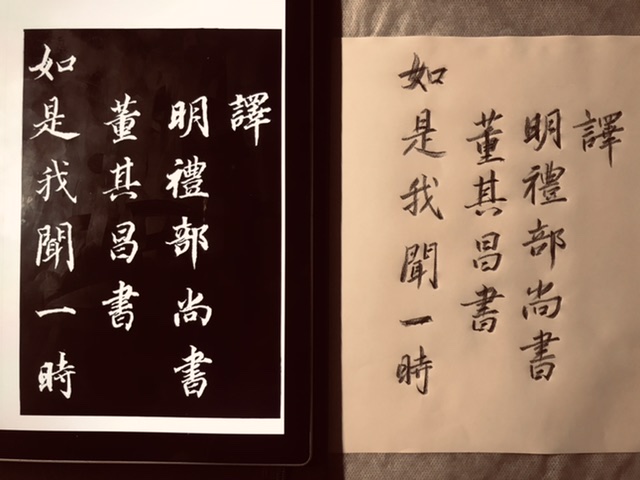 譯
明禮部尚書
董其昌書
如是我聞一時
譯
明禮部尚書
董其昌書
如是我聞一時